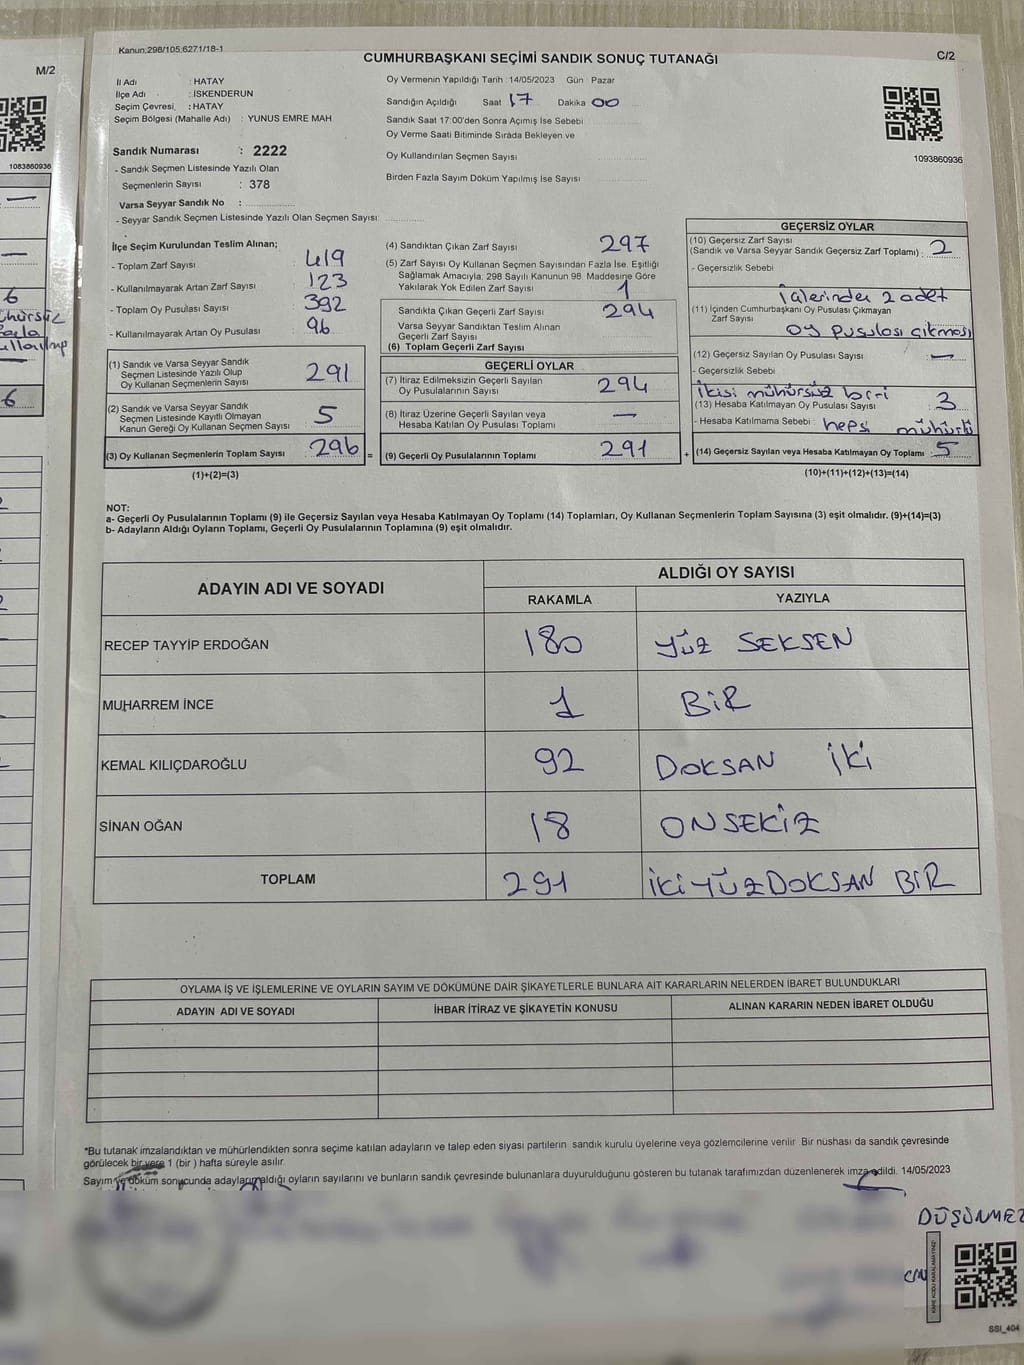 M/2
1083860936
6
6
Kanun:298/105,6271/18-1
CUMHURBAŞKANI SEÇİMİ SANDIK SONUÇ TUTANAĞI
C/2
İl Adı : HATAY
İlçe Adı : İSKENDERUN
Seçim Çevresi : HATAY
Seçim Bölgesi (Mahalle Adı) : YUNUS EMRE MAH
Sandık Numarası : 2222
- Sandık Seçmen Listesinde Yazılı Olan
Seçmenlerin Sayısı : 378
Varsa Seyyar Sandık No :
- Seyyar Sandık Seçmen Listesinde Yazılı Olan Seçmen Sayısı:
Oy Vermenin Yapıldığı Tarih : 14/05/2023 Gün : Pazar
Sandığın Açıldığı Saat 17 Dakika 00
Sandık Saat 17:00'den Sonra Açımış İse Sebebi
Oy Verme Saati Bitiminde Sırada Bekleyen ve
Oy Kullandırılan Seçmen Sayısı
Birden Fazla Sayım Döküm Yapılmış İse Sayısı
1093860936
İlçe Seçim Kurulundan Teslim Alınan;
- Toplam Zarf Sayısı 419
- Kullanılmayarak Artan Zarf Sayısı 123
- Toplam Oy Pusulası Sayısı 392
- Kullanılmayarak Artan Oy Pusulası 96
(1) Sandık ve Varsa Seyyar Sandık
Seçmen Listesinde Yazılı Olup
Oy Kullanan Seçmenlerin Sayısı 291
(2) Sandık ve Varsa Seyyar Sandık
Seçmen Listesinde Kayıtlı Olmayan
Kanun Gereği Oy Kullanan Seçmen Sayısı 5
(3) Oy Kullanan Seçmenlerin Toplam Sayısı 296 =
(1)+(2)=(3)
(4) Sandıktan Çıkan Zarf Sayısı 297
(5) Zarf Sayısı Oy Kullanan Seçmen Sayısından Fazla İse, Eşitliği
Sağlamak Amacıyla, 298 Sayılı Kanunun 98. Maddesine Göre
Yakılarak Yok Edilen Zarf Sayısı 1
Sandıkta Çıkan Geçerli Zarf Sayısı 294
Varsa Seyyar Sandıktan Teslim Alınan
Geçerli Zarf Sayısı
(6) Toplam Geçerli Zarf Sayısı
GEÇERLİ OYLAR
(7) İtiraz Edilmeksizin Geçerli Sayılan
Oy Pusulalarının Sayısı 294
(8) İtiraz Üzerine Geçerli Sayılan veya
Hesaba Katılan Oy Pusulası Toplamı —
(9) Geçerli Oy Pusulalarının Toplamı 291 +
GEÇERSİZ OYLAR
(10) Geçersiz Zarf Sayısı
(Sandık ve Varsa Seyyar Sandık Geçersiz Zarf Toplamı) : 2
- Geçersizlik Sebebi
İçlerinden 2 adet
(11) İçinden Cumhurbaşkanı Oy Pusulası Çıkmayan
Zarf Sayısı
oy pusulası çıkması
(12) Geçersiz Sayılan Oy Pusulası Sayısı —
- Geçersizlik Sebebi
İkisi mühürsüz biri
(13) Hesaba Katılmayan Oy Pusulası Sayısı 3
- Hesaba Katılmama Sebebi : hepsi mühürlü
(14) Geçersiz Sayılan veya Hesaba Katılmayan Oy Toplamı 5
(10)+(11)+(12)+(13)=(14)
NOT:
a- Geçerli Oy Pusulalarının Toplamı (9) ile Geçersiz Sayılan veya Hesaba Katılmayan Oy Toplamı (14) Toplamları, Oy Kullanan Seçmenlerin Toplam Sayısına (3) eşit olmalıdır. (9)+(14)=(3)
b- Adayların Aldığı Oyların Toplamı, Geçerli Oy Pusulalarının Toplamına (9) eşit olmalıdır.
ADAYIN ADI VE SOYADI
ALDIĞI OY SAYISI
RAKAMLA YAZIYLA
RECEP TAYYİP ERDOĞAN 180 YÜZ SEKSEN
MUHARREM İNCE 1 BİR
KEMAL KILIÇDAROĞLU 92 DOKSAN İKİ
SİNAN OĞAN 18 ONSEKİZ
TOPLAM 291 İKİYÜZDOKSAN BİR
OYLAMA İŞ VE İŞLEMLERİNE VE OYLARIN SAYIM VE DÖKÜMÜNE DAİR ŞİKAYETLERLE BUNLARA AİT KARARLARIN NELERDEN İBARET BULUNDUKLARI
ADAYIN ADI VE SOYADI İHBAR İTİRAZ VE ŞİKAYETİN KONUSU ALINAN KARARIN NEDEN İBARET OLDUĞU
*Bu tutanak imzalandıktan ve mühürlendikten sonra seçime katılan adayların ve talep eden siyasi partilerin sandık kurulu üyelerine veya gözlemcilerine verilir. Bir nüshası da sandık çevresinde
görülecek bir yere 1 (bir ) hafta süreyle asılır.
Sayım ve döküm sonucunda adayların aldığı oyların sayılarını ve bunların sandık çevresinde bulunanlara duyurulduğunu gösteren bu tutanak tarafımızdan düzenlenerek imza edildi. 14/05/2023
DÜŞÜNMEZ
KARE KODU KARALAMAYINIZ
SSI_404